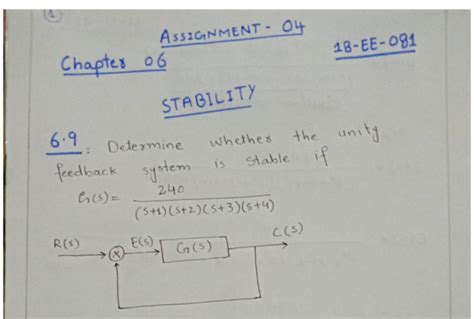 1
ASSIGNMENT - 04
Chapter 06
18-EE-081
STABILITY
6.9: Determine whether the unity
feedback system is stable if
G(s) = 240
(s+1)(s+2)(s+3)(s+4)
R(s)
E(s)
G(s)
C(s)